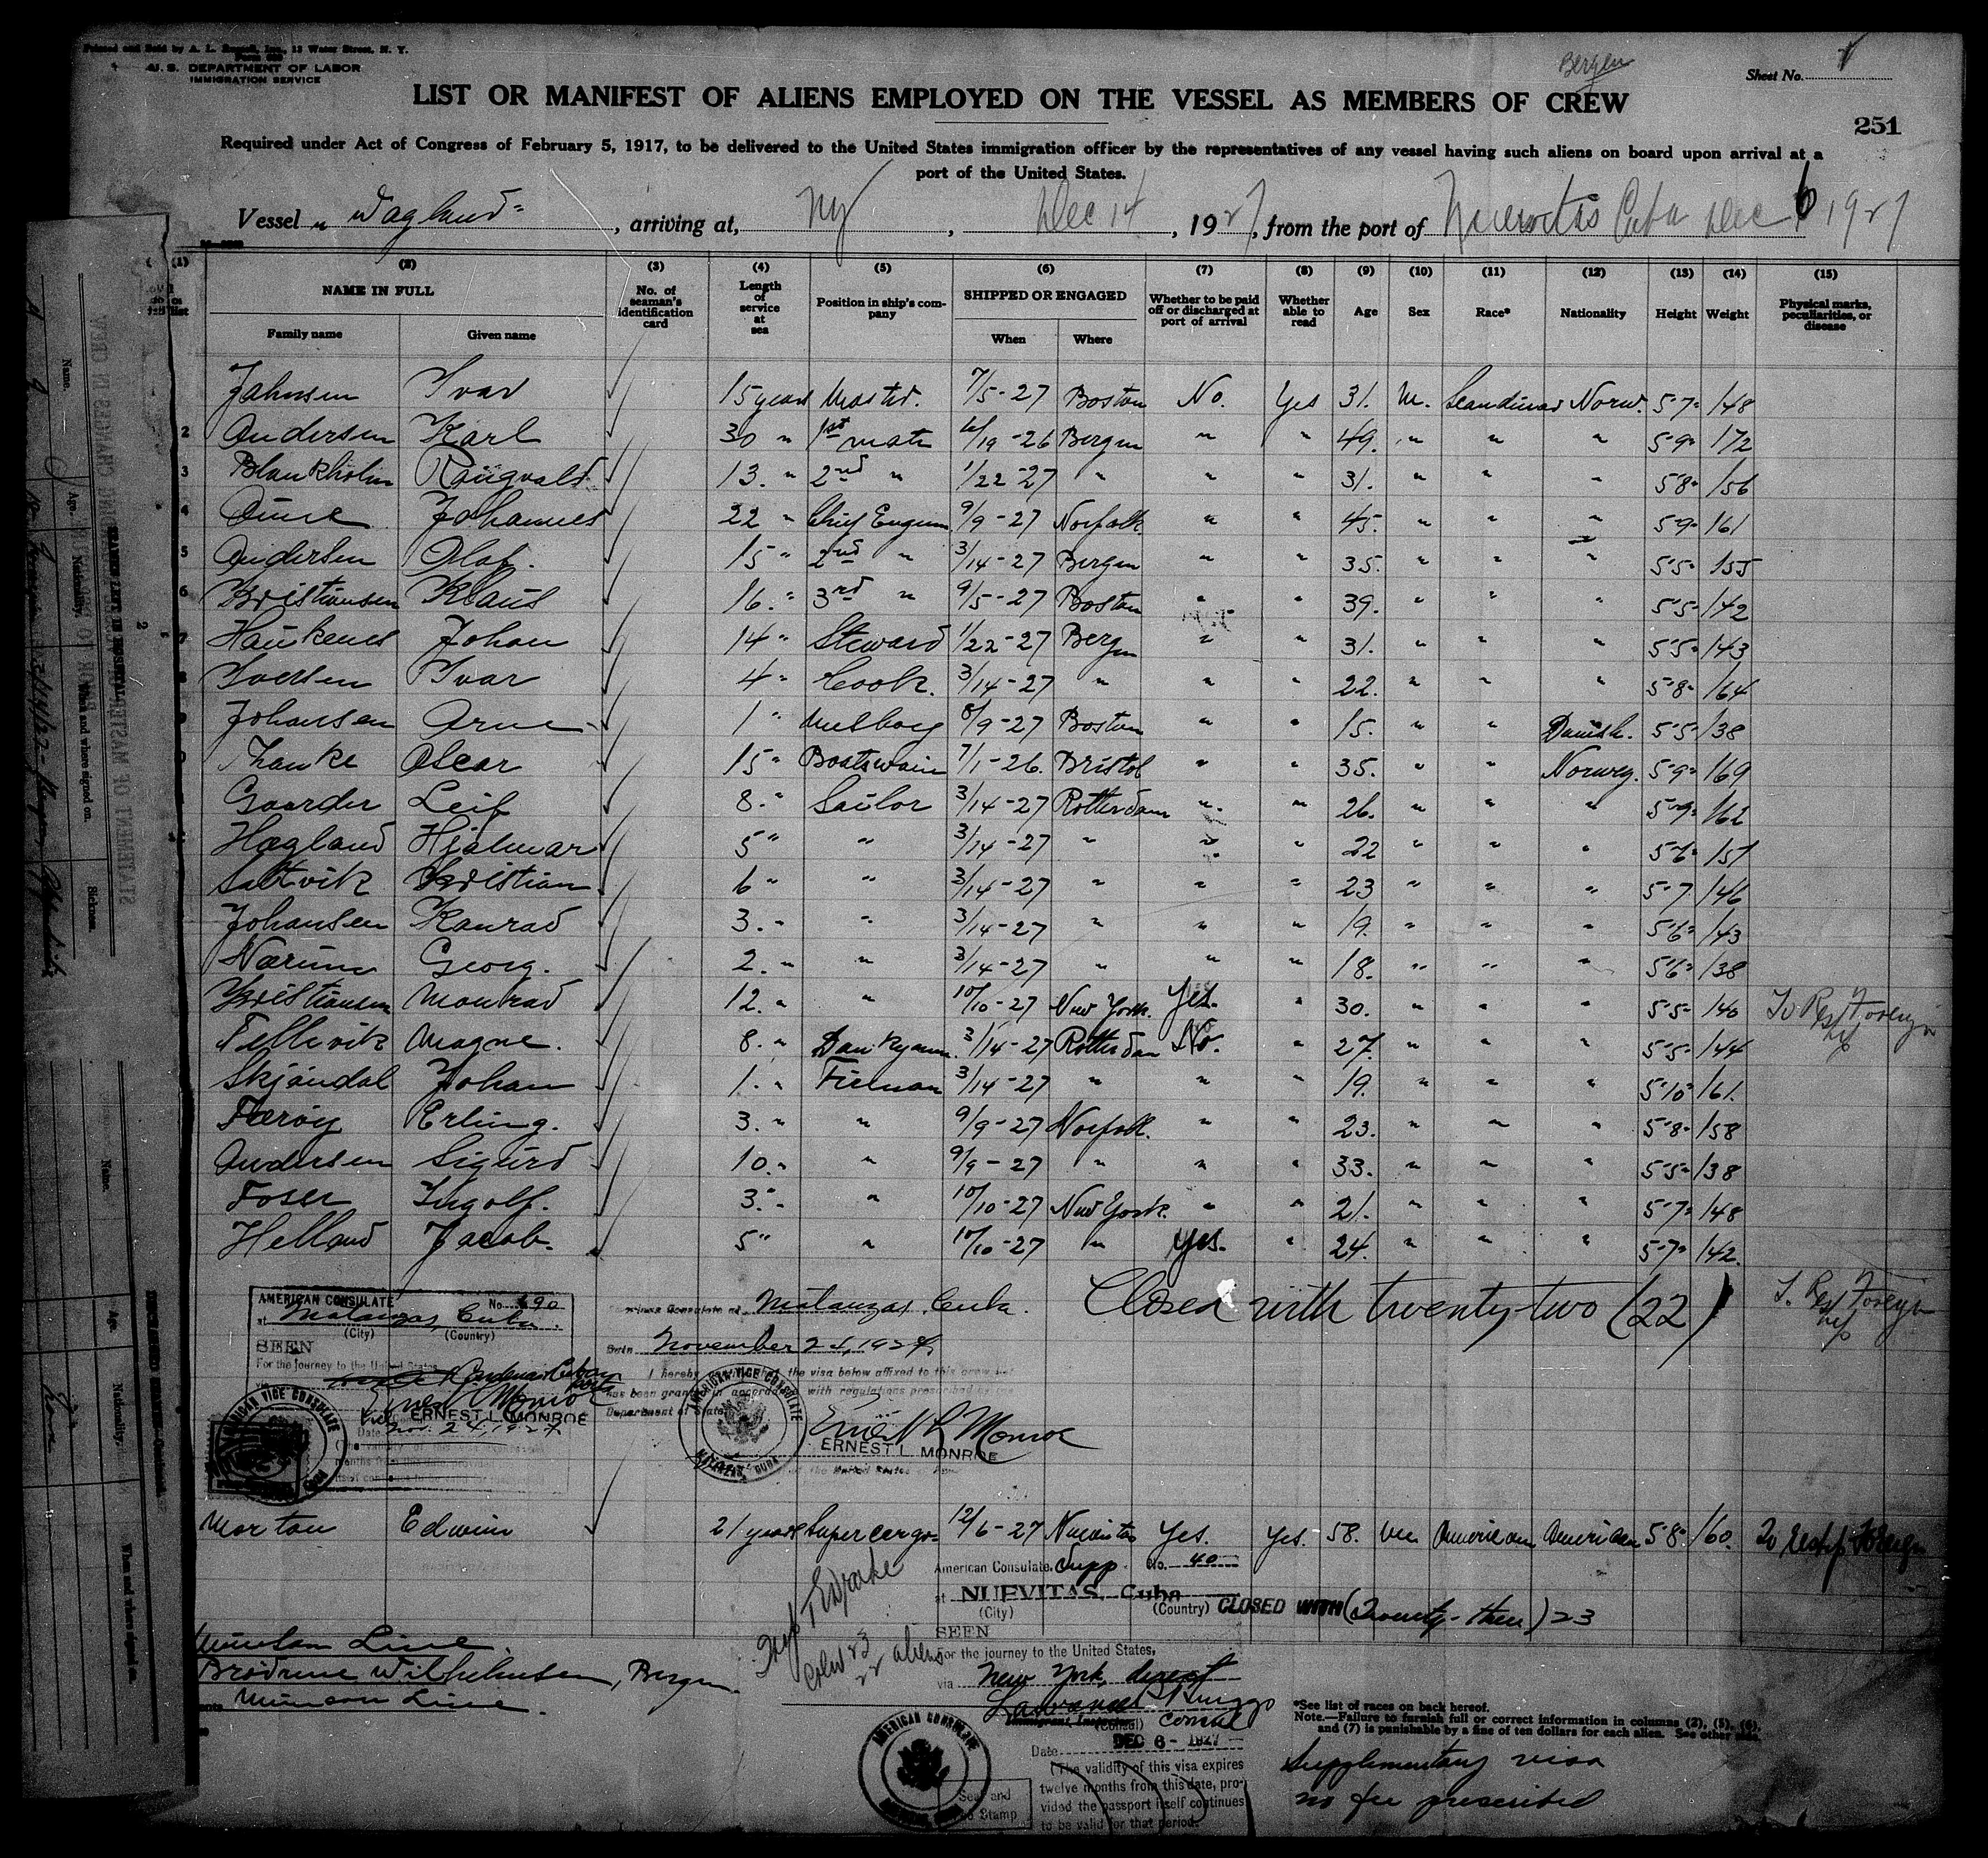 Printed and Sold by A. L. Russell, Inc., 13 Water Street, N. Y.
U. S. DEPARTMENT OF LABOR
IMMIGRATION SERVICE
Bergen
Sheet No.
LIST OR MANIFEST OF ALIENS EMPLOYED ON THE VESSEL AS MEMBERS OF CREW
251
Required under Act of Congress of February 5, 1917, to be delivered to the United States immigration officer by the representatives of any vessel having such aliens on board upon arrival at a
port of the United States.
Vessel "Dagland" , arriving at, NY , Dec 14 , 1927, from the port of Nuevitas Cuba Dec 6 1927
(1) (2) (3) (4) (5) (6) (7) (8) (9) (10) (11) (12) (13) (14) (15)
NAME IN FULL No. of seaman's identification card Length of service at sea Position in ship's company SHIPPED OR ENGAGED Whether to be paid off or discharged at port of arrival Whether able to read Age Sex Race* Nationality Height Weight Physical marks, peculiarities, or disease
Family name Given name When Where
Johnsen Ivar 15 years Master. 7/5-27 Boston No. Yes 31. M. Scandinav Norw. 5-7" 148
2 Andersen Karl 30 " 1st mate 6/19-26 Bergen " " 49. " " " 5-9" 172
3 Blankholm Rangvald 13. " 2nd " 1/22-27 " " " 31. " " " 5-8" 156
4 Aune Johannes 22 " Chief Engineer 9/9-27 Norfolk " " 45. " " " 5-9" 161
5 Andersen Olaf. 15 " 2nd " 3/14-27 Bergen " " 35. " " " 5-5" 155
6 Kristiansen Klaus 16. " 3rd " 9/5-27 Boston " " 39. " " " 5-5" 142
7 Haukenes Johan 14 " Steward 1/22-27 Bergen " " 31. " " " 5-5" 143
Iversen Ivar 4 " Cook. 3/14-27 " " " 22. " " " 5-8" 164
Johansen Arne 1 " Messboy 8/9-27 Boston " " 15. " " Danish. 5-5" 138
Thanke Oscar 15 " Boatswain 7/1-26. Bristol " " 35. " " Norweg. 5-9" 169
Gaarder Leif 8. " Sailor 3/14-27 Rotterdam " " 26. " " " 5-9" 162
Hagland Hjalmar 5 " " 3/14-27 " " " 22 " " " 5-6" 157
Saltvik Kristian 6 " " 3/14-27 " " " 23 " " " 5-7 146
Johansen Konrad 3. " " 3/14-27 " " " 19. " " " 5-6" 143
Nærum Georg. 2. " " 3/14-27 " " " 18. " " " 5-6" 138
Kristiansen Monrad 12. " " 10/10-27 New York. Yes. " 30. " " " 5-5" 140 To Resp Foreign
Tellevik Magne. 8. " Donkeyman. 3/14-27 Rotterdam No. " 27. " " " 5-5" 144
Skjøndal Johan 1. " Fireman 3/14-27 " " " 19. " " " 5-10" 161.
Færøy Erling. 3. " " 9/9-27 Norfolk. " " 23. " " " 5-8" 158
Andersen Sigurd 10. " " 9/9-27 " " " 33. " " " 5-5" 138
Foser Ingolf. 3. " " 10/10-27 New York. " " 21. " " " 5-7" 148
Helland Jacob. 5 " " 10/10-27 " Yes. " 24. " " " 5-7" 142.
AMERICAN CONSULATE No. 690
at Matanzas, Cuba.
(City) (Country)
SEEN
For the journey to the United States
ERNEST L. MONROE
Date Nov. 24, 1927
AMERICAN VICE CONSULATE
American Consulate at Matanzas, Cuba.
Date November 24, 1927.
I hereby the visa below affixed to this crew
has been granted in accordance with regulations prescribed by
Department of State.
AMERICAN VICE CONSULATE
MATANZAS, CUBA
Ernest L Monroe
ERNEST L. MONROE
Closed with twenty-two (22)
Foreign
Morton Edwin 21 years Supercargo 12/6-27 Nuevitas Yes. Yes. 58. M American American 5-8" 160.
American Consulate. Supp. No. 40
at NUEVITAS, Cuba
(City) (Country)
CLOSED WITH (Twenty-three) 23
SEEN
For the journey to the United States,
via New York, direct
(Consul) Consul
Date DEC 6 - 1927
(The validity of this visa expires
twelve months from this date, provided
the passport itself continues
to be valid for that period.
AMERICAN CONSULATE
Seal and
Stamp
aliens
Munson Line.
Brødrene Wilhelmsen, Bergen
Munson Line.
*See list of races on back hereof.
Note.—Failure to furnish full or correct information in columns (2), (5), (6),
and (7) is punishable by a fine of ten dollars for each alien. See other side.
Supplementary visa
no fee prescribed
Name.
Age.
Nationality.
When and where signed on.
Sickness.
Name.
Age.
Nationality.
When and where signed on.